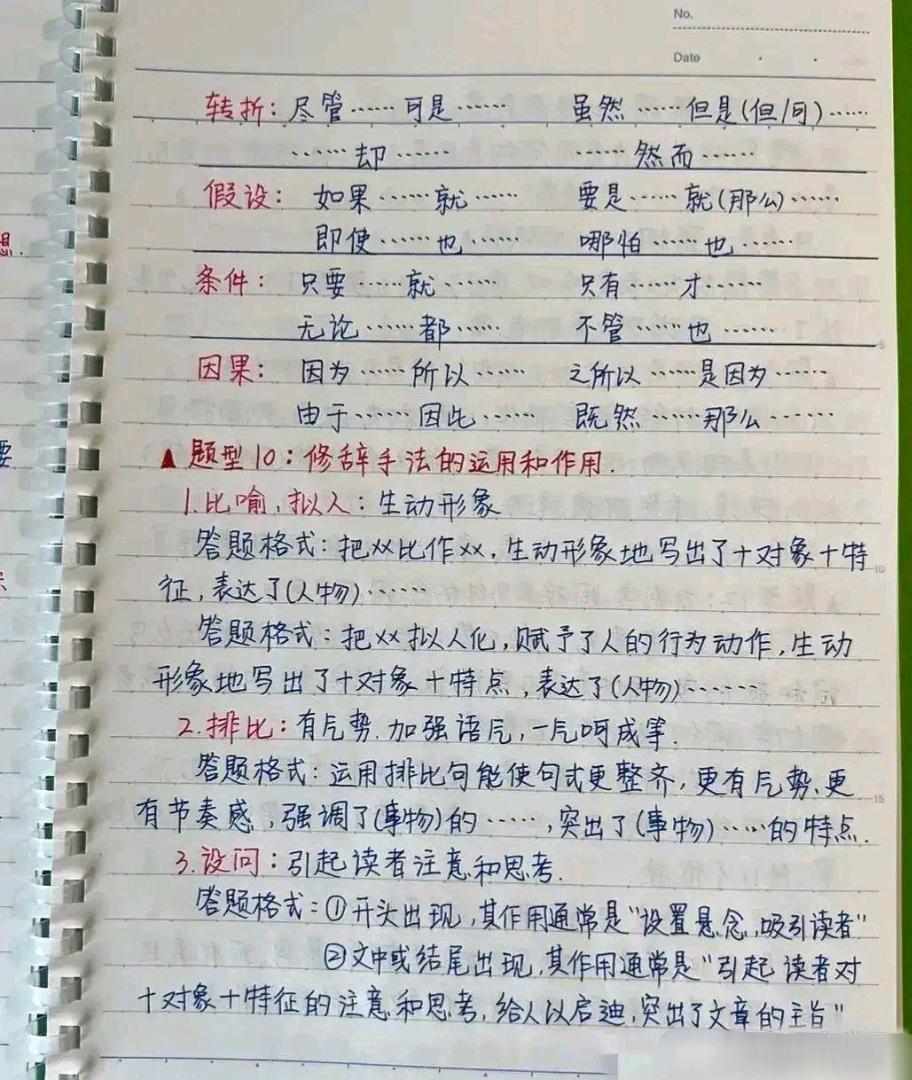 No.
Date
转折：尽管……可是…… 虽然……但是(但/可)……
……却…… ……然而……
假设：如果……就…… 要是……就(那么)……
即使……也…… 哪怕……也……
条件：只要……就…… 只有……才……
无论……都…… 不管……也……
因果：因为……所以…… 之所以……是因为……
由于……因此…… 既然……那么……
▲题型10：修辞手法的运用和作用.
1.比喻，拟人：生动形象
答题格式：把××比作××，生动形象地写出了+对象+特
征，表达了(人物)……
答题格式：把××拟人化，赋予了人的行为动作，生动
形象地写出了+对象+特点，表达了(人物)……
2.排比：有气势.加强语气，一气呵成等.
答题格式：运用排比句能使句式更整齐，更有气势.更
有节奏感，强调了(事物)的……，突出了(事物)……的特点.
3.设问：引起读者注意和思考.
答题格式：①开头出现，其作用通常是"设置悬念，吸引读者"
②文中或结尾出现，其作用通常是"引起读者对
+对象+特征的注意和思考，给人以启迪，突出了文章的主旨"
想.
要
5
10
15